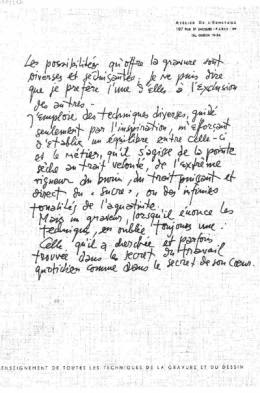 ATELIER DE L'ERMITAGE
187 RUE ST JACQUES - PARIS - 5e
Les possibilités qu'offre la gravure sont
diverses et séduisantes. Je ne puis dire
que je préfère l'une d'elles à l'exclusion
des autres.
J'emploie des techniques diverses, guidé
seulement par l'inspiration, m'efforçant
d'établir un équilibre entre celle-ci
et le métier, qu'il s'agisse de la pointe
sèche au trait velouté, de l'extrême
rigueur du burin, du trait puissant et
direct du "sucre", ou des infinies
tonalités de l'aquatinte.
Mais un graveur, lorsqu'il énonce les
technique, en oublie toujours une :
Celle qu'il a cherchée et parfois
trouvée dans le secret du travail
quotidien comme dans le secret de son Cœur.
ENSEIGNEMENT DE TOUTES LES TECHNIQUES DE LA GRAVURE ET DU DESSIN